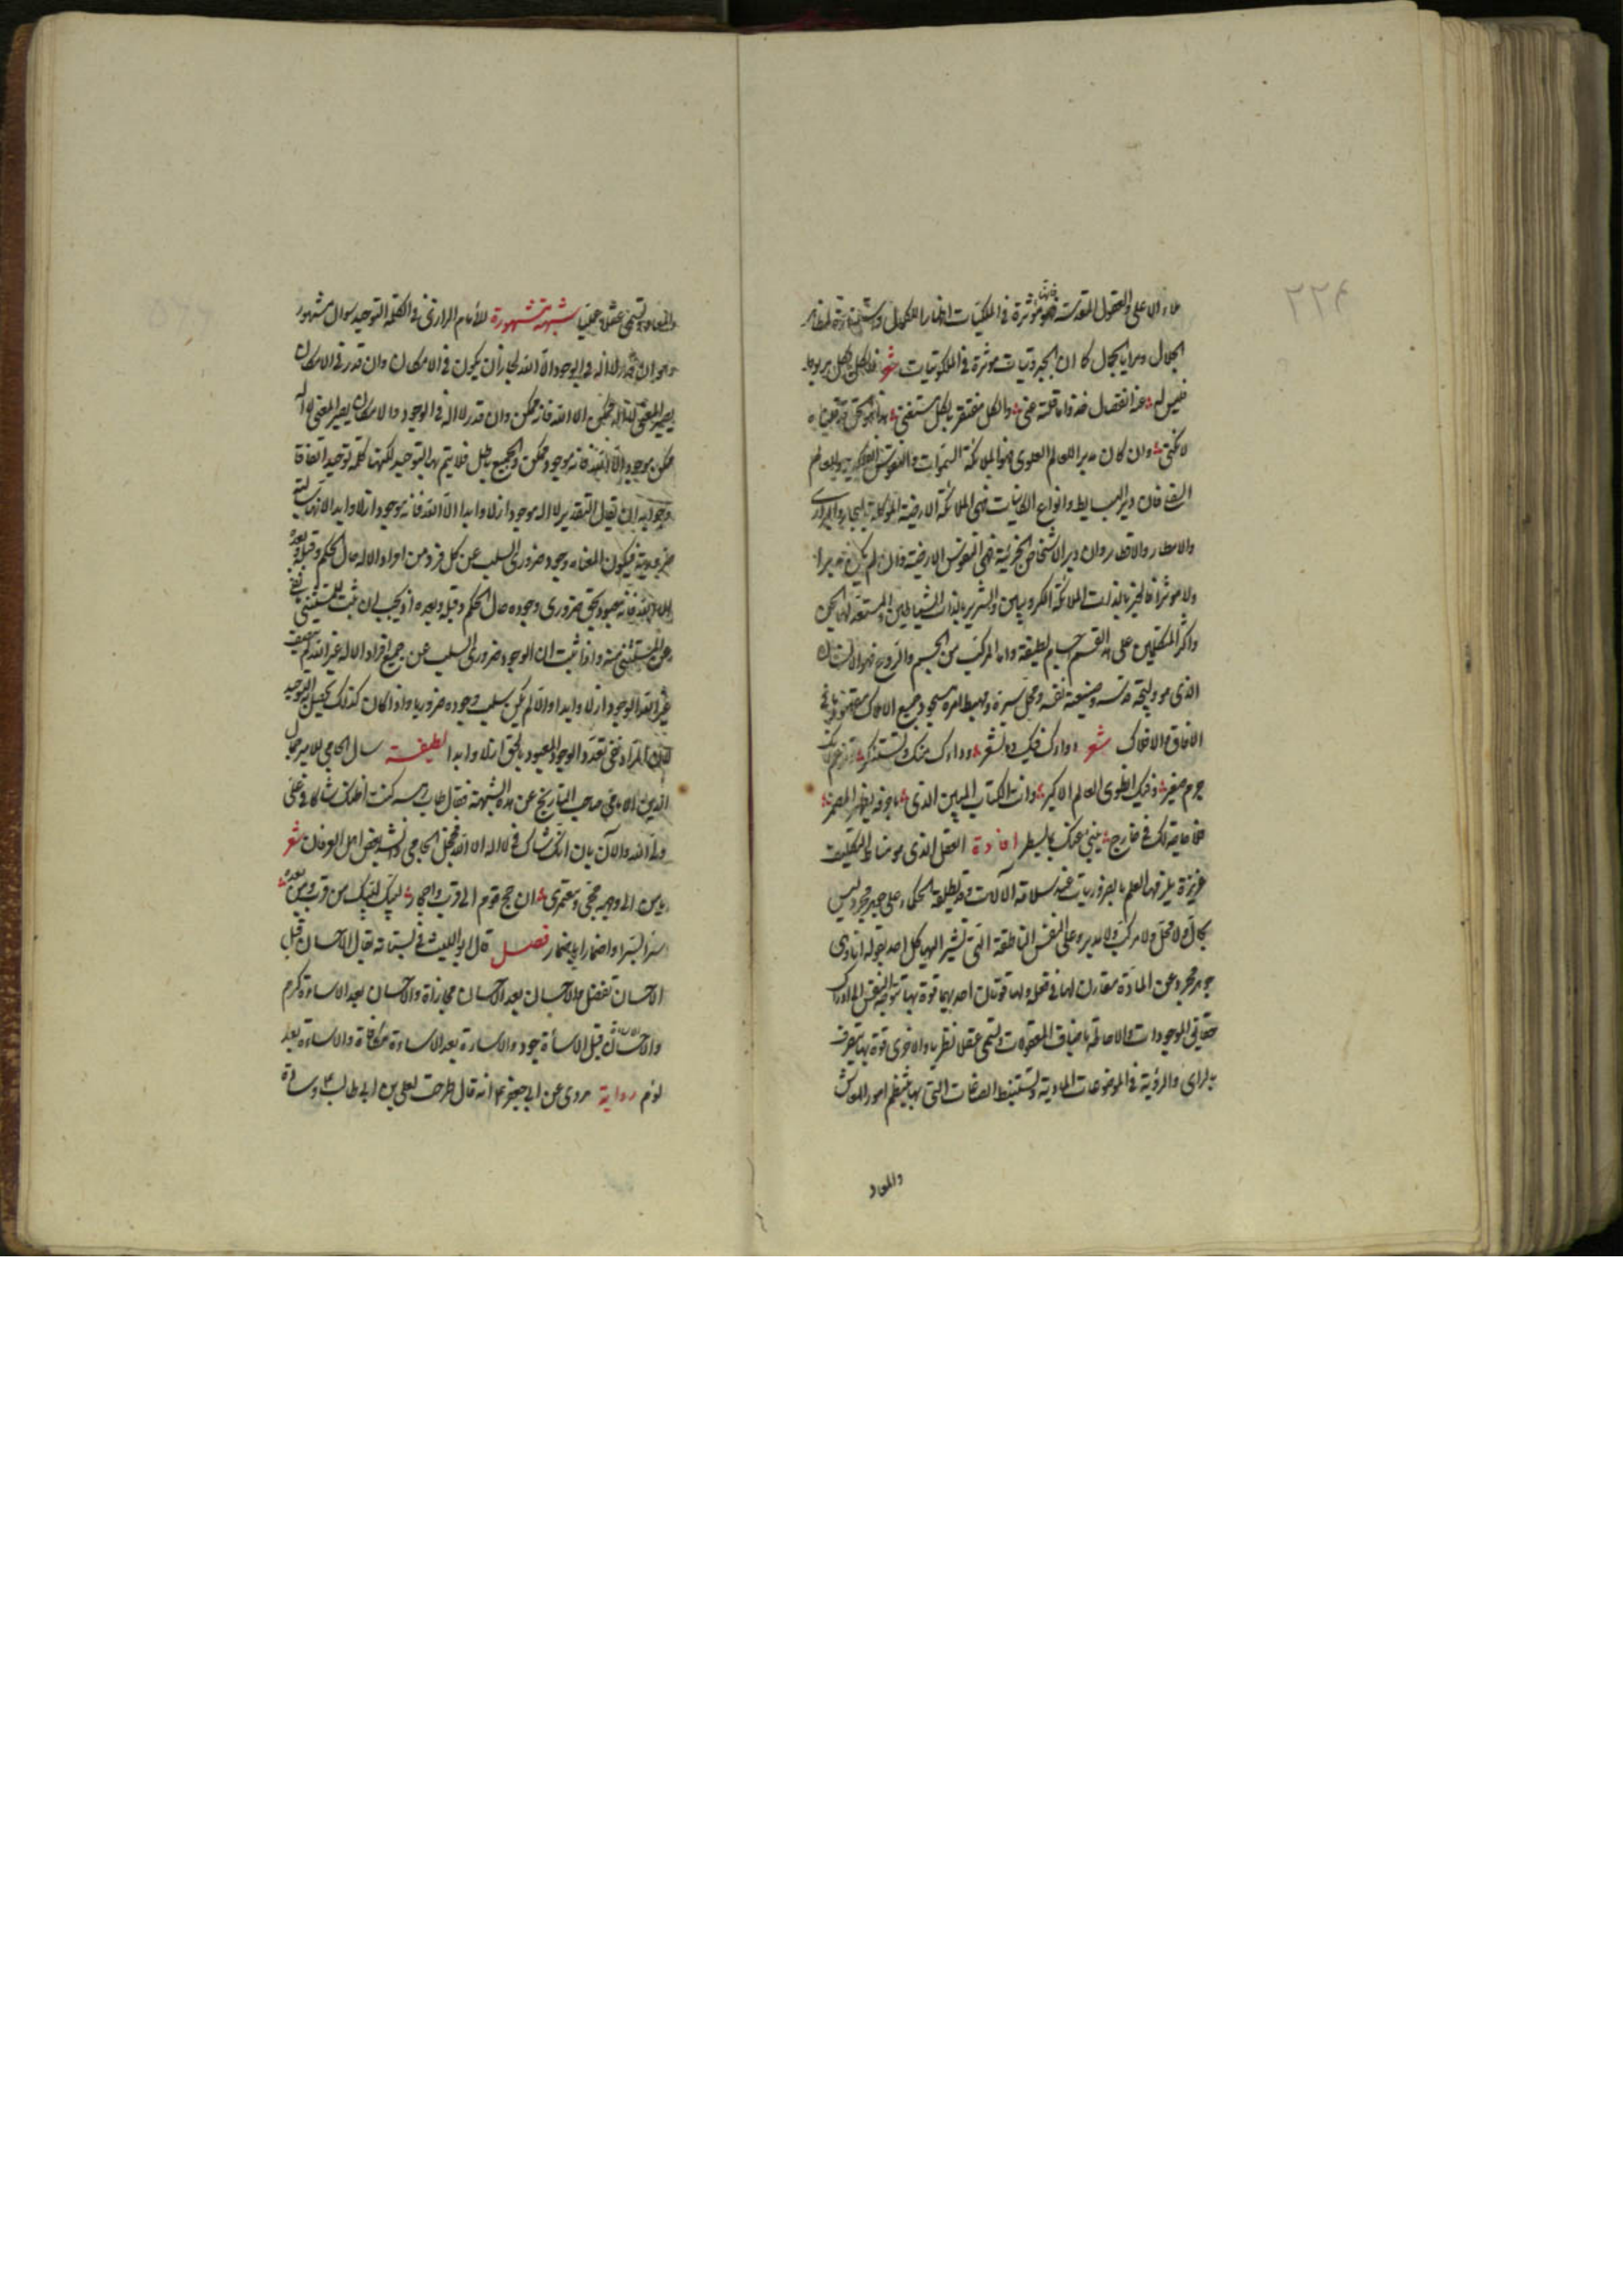 ٢٢٤
ملاء الاعلى والعقول المقدسة فانها مؤثرة في الملكيات اظهارا للكمال
الجلال ومرايا الجمال كما ان الجبروتيات مؤثرة في الملكوتيات شعر فالكل بالكل مربوط
فليس له عنه انفصال خذوا ما قلته عني والكل مفتقر ما الكل مستغني هذا هو الحق قد قلناه
لا نكني وان كان مدبرا للعالم العلوي فهو الملائكة السموات والنفوس الفلكية والعالم
السفلي فان دبر البسايط وانواع الكائنات فهي الملائكة الارضية الموكلة بالبحار والبراري
والامطار والاقطار وان دبر الاشخاص الجزئية فهي النفوس الارضية وان لم يكن مدبرا
ولا مؤثرا فالخير بالذات الملائكة الكروبيين والشرير بالذات الشياطين والمستعد لهما الجن
واكثر المتكلمين على القسم اجسام لطيفة واما المركب من الجسم والروح فهو الانسان
الذي هو وليجة قدسه وصنيعة نفسه ومحل سره ومهبط امره مسجود جميع الاملاك
الافاق والافلاك شعر دواؤك فيك وما تشعر وداءك منك وتستنكر وتزعم انك
جرم صغير وفيك انطوى العالم الاكبر وانت الكتاب المبين الذي باحرفه يظهر المضمر
فلا حاجة لك في خارج ينبئ عنك بما يسطر افادة العقل الذي هو مناط التكليف
غريزة يلزمها العلم بالضروريات عند سلامة الآلات وقد يطلقه الحكماء على جوهر مجرد ليس
بحال ولا محل ولا مركب ولا مدبر وعلى النفس الناطقة التي تشير اليها كل احد بقوله انا وهي
جوهر مجرد عن المادة مقارن لها في فعله ولها قوتان احديهما قوة بها تتوجه النفس الى ادراك
حقايق الموجودات والاحاطة باصناف المعقولات وتسمى عقلا نظريا والاخرى قوة بها تتصرف
بالراي والروية في الموضوعات المادية وتستنبط الصناعات التي بها ينتظم امور المعاش
والمعاد
والمعاد وتسمى عقلا عمليا شبهة مشهورة للامام الرازي في الكلمة التوحيد سوال مشهور
وهو ان قدر لا اله في الوجود الا الله لجاز ان يكون في الامكان وان قدر في الامكان
يصير المعنى لا اله ممكن الا الله فانه ممكن وان قدر لا اله في الوجود والامكان يصير المعنى لا اله
ممكن موجود الا الله فانه موجود ممكن والجميع باطل فلا يتم بها التوحيد لكنها كلمة توحيد اتفاقا
وجوابه ان يقال التقدير لا اله موجود ازلا وابدا الا الله فانه موجود ازلا وابدا لانها سالبة
ضرورية فيكون المعناه وجود ضروري السلب عن كل فرد من افراد الاله حال الحكم وقبله وبعده
الا الله فانه معبود بحق ضروري وجوده حال الحكم وقبله وبعده اذ يجب ان يثبت للمستثنى ما نفي
عن المستثنى منه واذا ثبت ان الوجود ضروري السلب عن جميع افراد الاله غير الله لم يتصف
غير الله بالوجود ازلا وابدا والا لم يكن سلب وجوده ضروريا واذا كان كذلك يحصل التوحيد
لان المراد نفي تعدد الوجود المعبود بالحق ازلا وابدا لطيفة سال الجامي للامير جمال
الدين صاحب التاريخ عن هذه الشبهة فقال كنت اظنك شاكا في علي
ولد الله والآن بان انك شاك في لا اله الا الله فخجل الجامي وانشد بعض اهل العرفان شعر
يا من الى وجهه حجي ومعتمري ان حج قوم الى ترب واحجار لبيك لبيك من قرب ومن بعد
سرا بسر واضمارا باضمار فصل قال ابو الليث في بستانه يقال الاحسان قبل
الاحسان تفضل والاحسان بعد الاحسان مجازاة والاحسان بعد الاساءة كرم
والاحسان قبل الاساءة جود والاساءة بعد الاساءة مكافاة والاساءة بعد
لؤم رواية مروي عن ابي جعفر ع انه قال طرحت لعلي بن ابي طالب ع وسادة